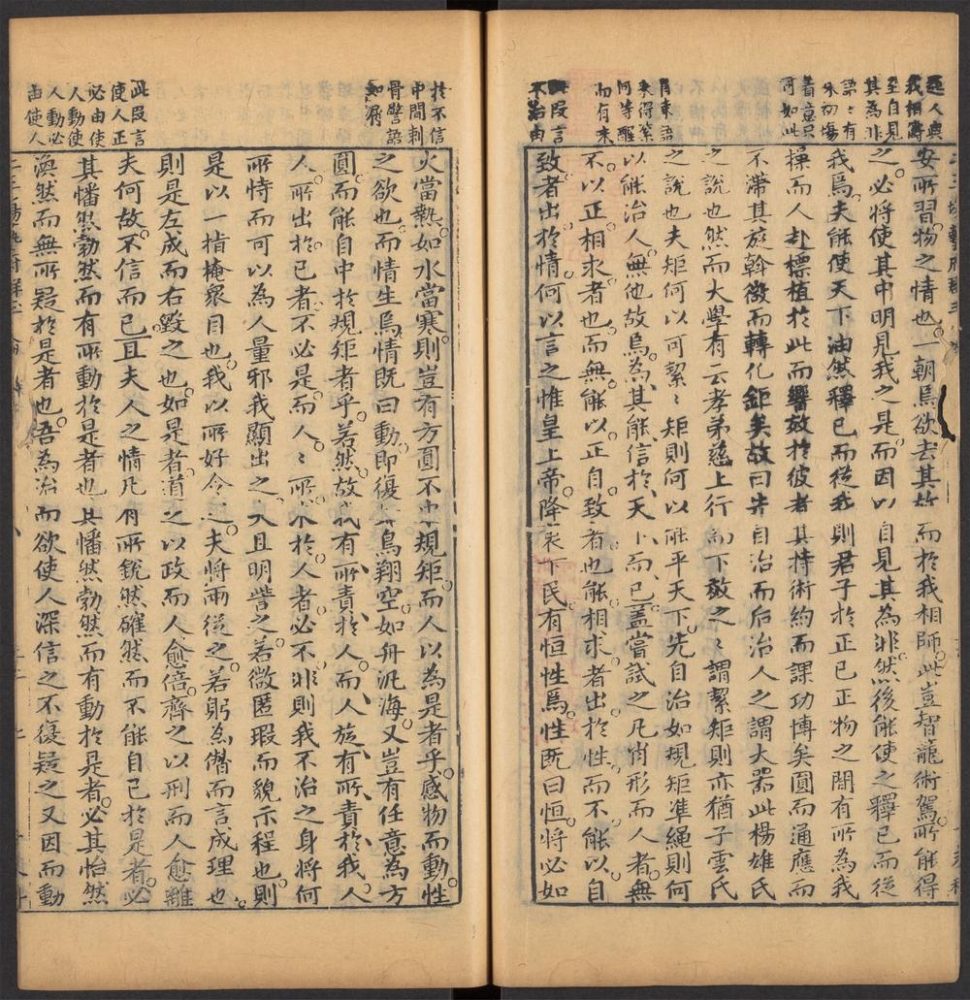 安所習物之情也一朝焉欲去其故而於我相師此豈智籠術駕所能得
之必將使其中明見我之是而因以自見其為非然後能使之釋已而從
我焉夫能使天下油然釋已而從我則君子於正已正物之間有所為我
操而人赴標植於此而響效於彼者其持術約而課功博矣圓而通應而
不滯其旋斡微而轉化鉅矣故曰先自治而后治人之謂大器此楊雄氏
之說也然而大學有云孝弟慈上行而下效之之謂絜矩則亦猶子雲氏
之說也夫矩何以可絜絜矩則何以能平天下先自治如規矩準繩則何
以能治人無他故焉為其能信於天下而已蓋嘗試之凡肖形而人者無
不以正相求者也而無能以正自致者也能相求者出於性而不能以自
致者出於情何以言之惟皇上帝降衷下民有恒性焉性既曰恒將必如
火當熱如水當寒則豈有方圓不中規矩而人以為是者乎感物而動性
之欲也而情生焉情既曰動即復如鳥翔空如舟汎海又豈有任意為方
圓而能自中於規矩者乎若然故我有所責於人而人旋有所責於我人
人所出於已者不必是而人人所求於人者必不非則我不治之身將何
所恃而可以為人量邪我顯出之大且明訾之若微匿瑕而貌示程也則
是以一指掩衆目也我以所好令之夫將而從之若躬為僭而言成理也
則是左成而右毀之也如是者道之以政而人愈倍齊之以刑而人愈離
夫何故不信而已且夫人之情凡有所銳然確然而不能自已於是者必
其幡然勃然而有所動於是者也其幡然勃然而有動於是者必其怡然
渙然而無所疑於是者也吾為治而欲使人深信之不復疑之又因而動
此段言
使人正
必由使
人動使
人動必
由使人